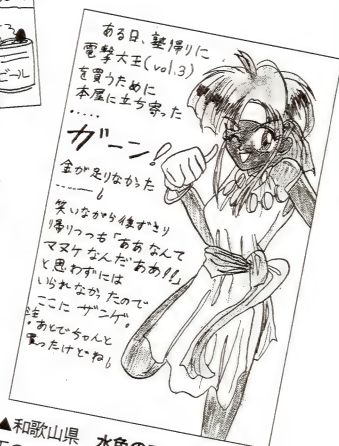 ビール
ある日、塾帰りに
電撃大王(vol.3)
を買うために
本屋に立ち寄った
.....
ガーン!
金が足りなかった
……ー。
笑いながら後ずさり
帰りつつも「ああなんて
マヌケなんだああ!!」
と思わずには
いられなかったので
ここに ザンゲ。
注:あとでちゃんと
買ったけどね。
▲和歌山県 水魚の